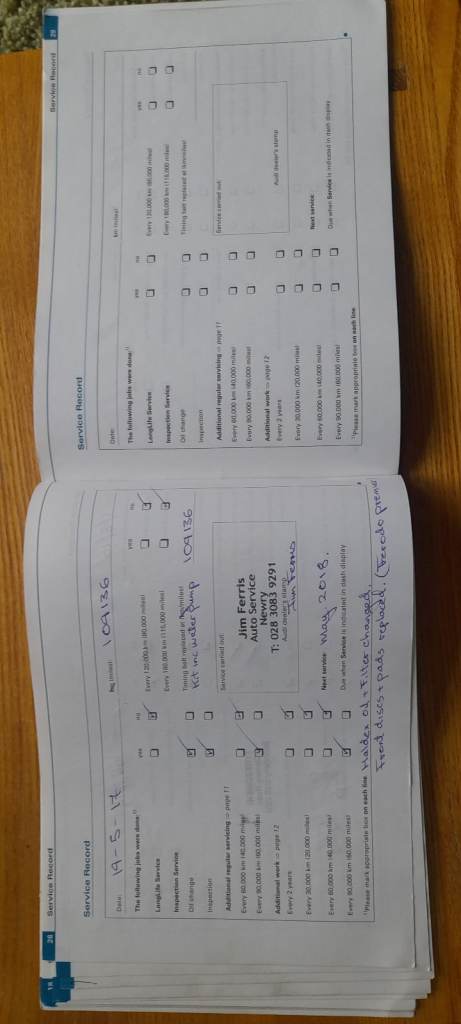 18
26
Service Record
Service Record
Date: 19-5-17
km (miles): 109136
The following jobs were done:¹⁾
yes
no
LongLife Service
Inspection Service
Oil change
Inspection
Additional regular servicing ⇨ page 11
Every 60,000 km (40,000 miles)
Every 90,000 km (60,000 miles)
Additional work ⇨ page 12
Every 2 years
Every 30,000 km (20,000 miles)
Every 60,000 km (40,000 miles)
Every 90,000 km (60,000 miles)
yes
no
Every 120,000 km (80,000 miles)
Every 180,000 km (115,000 miles)
Timing belt replaced at (km/miles)
Kit inc water pump 109136
Service carried out:
Jim Ferris
Auto Service
Newry
T: 028 3083 9291
Audi dealer's stamp
Jim Ferris
Next service: May 2018.
Due when Service is indicated in dash display
¹⁾Please mark appropriate box on each line
Haldex oil + Filter changed.
Front discs + pads replaced. (Ferodo premier
Service Record
29
Service Record
Date:
km (miles):
The following jobs were done:¹⁾
yes
no
LongLife Service
Inspection Service
Oil change
Inspection
Additional regular servicing ⇨ page 11
Every 60,000 km (40,000 miles)
Every 90,000 km (60,000 miles)
Additional work ⇨ page 12
Every 2 years
Every 30,000 km (20,000 miles)
Every 60,000 km (40,000 miles)
Every 90,000 km (60,000 miles)
yes
no
Every 120,000 km (80,000 miles)
Every 180,000 km (115,000 miles)
Timing belt replaced at (km/miles)
Service carried out:
Audi dealer's stamp
Next service:
Due when Service is indicated in dash display
¹⁾Please mark appropriate box on each line